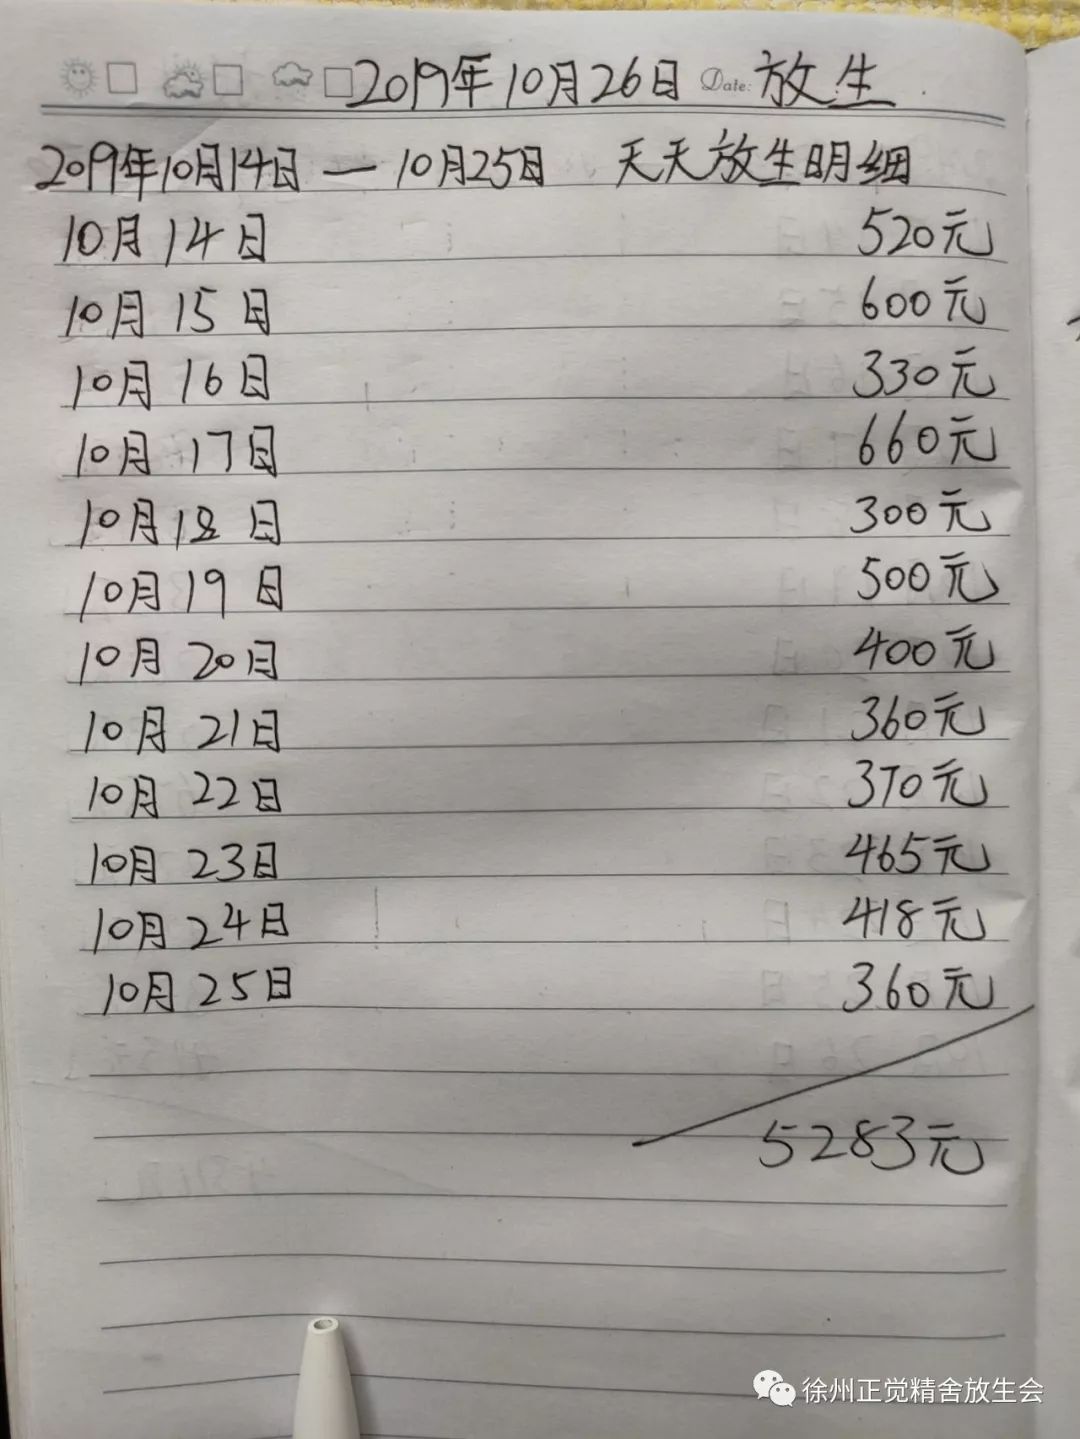 2019年10月26日 Date: 放生
2019年10月14日—10月25日 天天放生明细
10月14日 520元
10月15日 600元
10月16日 330元
10月17日 660元
10月18日 300元
10月19日 500元
10月20日 400元
10月21日 360元
10月22日 370元
10月23日 465元
10月24日 418元
10月25日 360元
5283元
徐州正觉精舍放生会